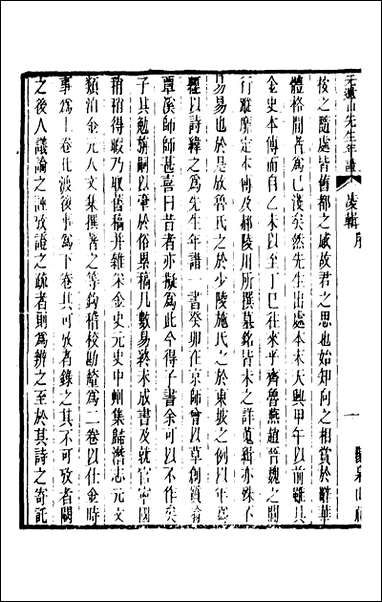 元遺山先生年譜
凌輯序
一
按之隨處皆舊都之感故君之思也始知向之相賞於辭華
體格閒者為已淺矣然先生出處本末大興甲午以前雖具
金史本傳而自乙未以至丁巳往來乎齊魯燕趙晉魏之閒
行蹤靡定本傳及郝陵川所撰墓銘皆未之詳蒐輯亦殊下
易易也於是放魯氏之於少陵施氏之於東坡之例以年為
經以詩緯之為先生年譜一書癸卯在京師曾以草創質翁
覃溪師師甚喜曰昔者亦擬為此今得子書余可以不作矣
子其勉旃嗣以牽於俗累稿凡數易終未成書及就官寧國
稍稍得暇乃取舊稿并雜采金史元史中州集歸潛志元文
類洎金元人文集撰著之等鉤稽校勘釐為二卷以仕金時
事為上卷北渡後事為下卷其可攷者錄之其不可攷者闕
之後人議論之誣攷證之疏者則為辨之至於其詩之寄託